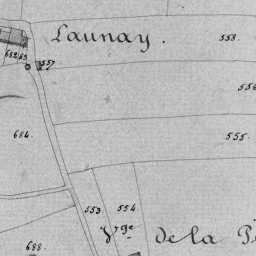 Launay.
558.
682 683
557
556
684.
555.
553. 554.
Vge de la P
688.